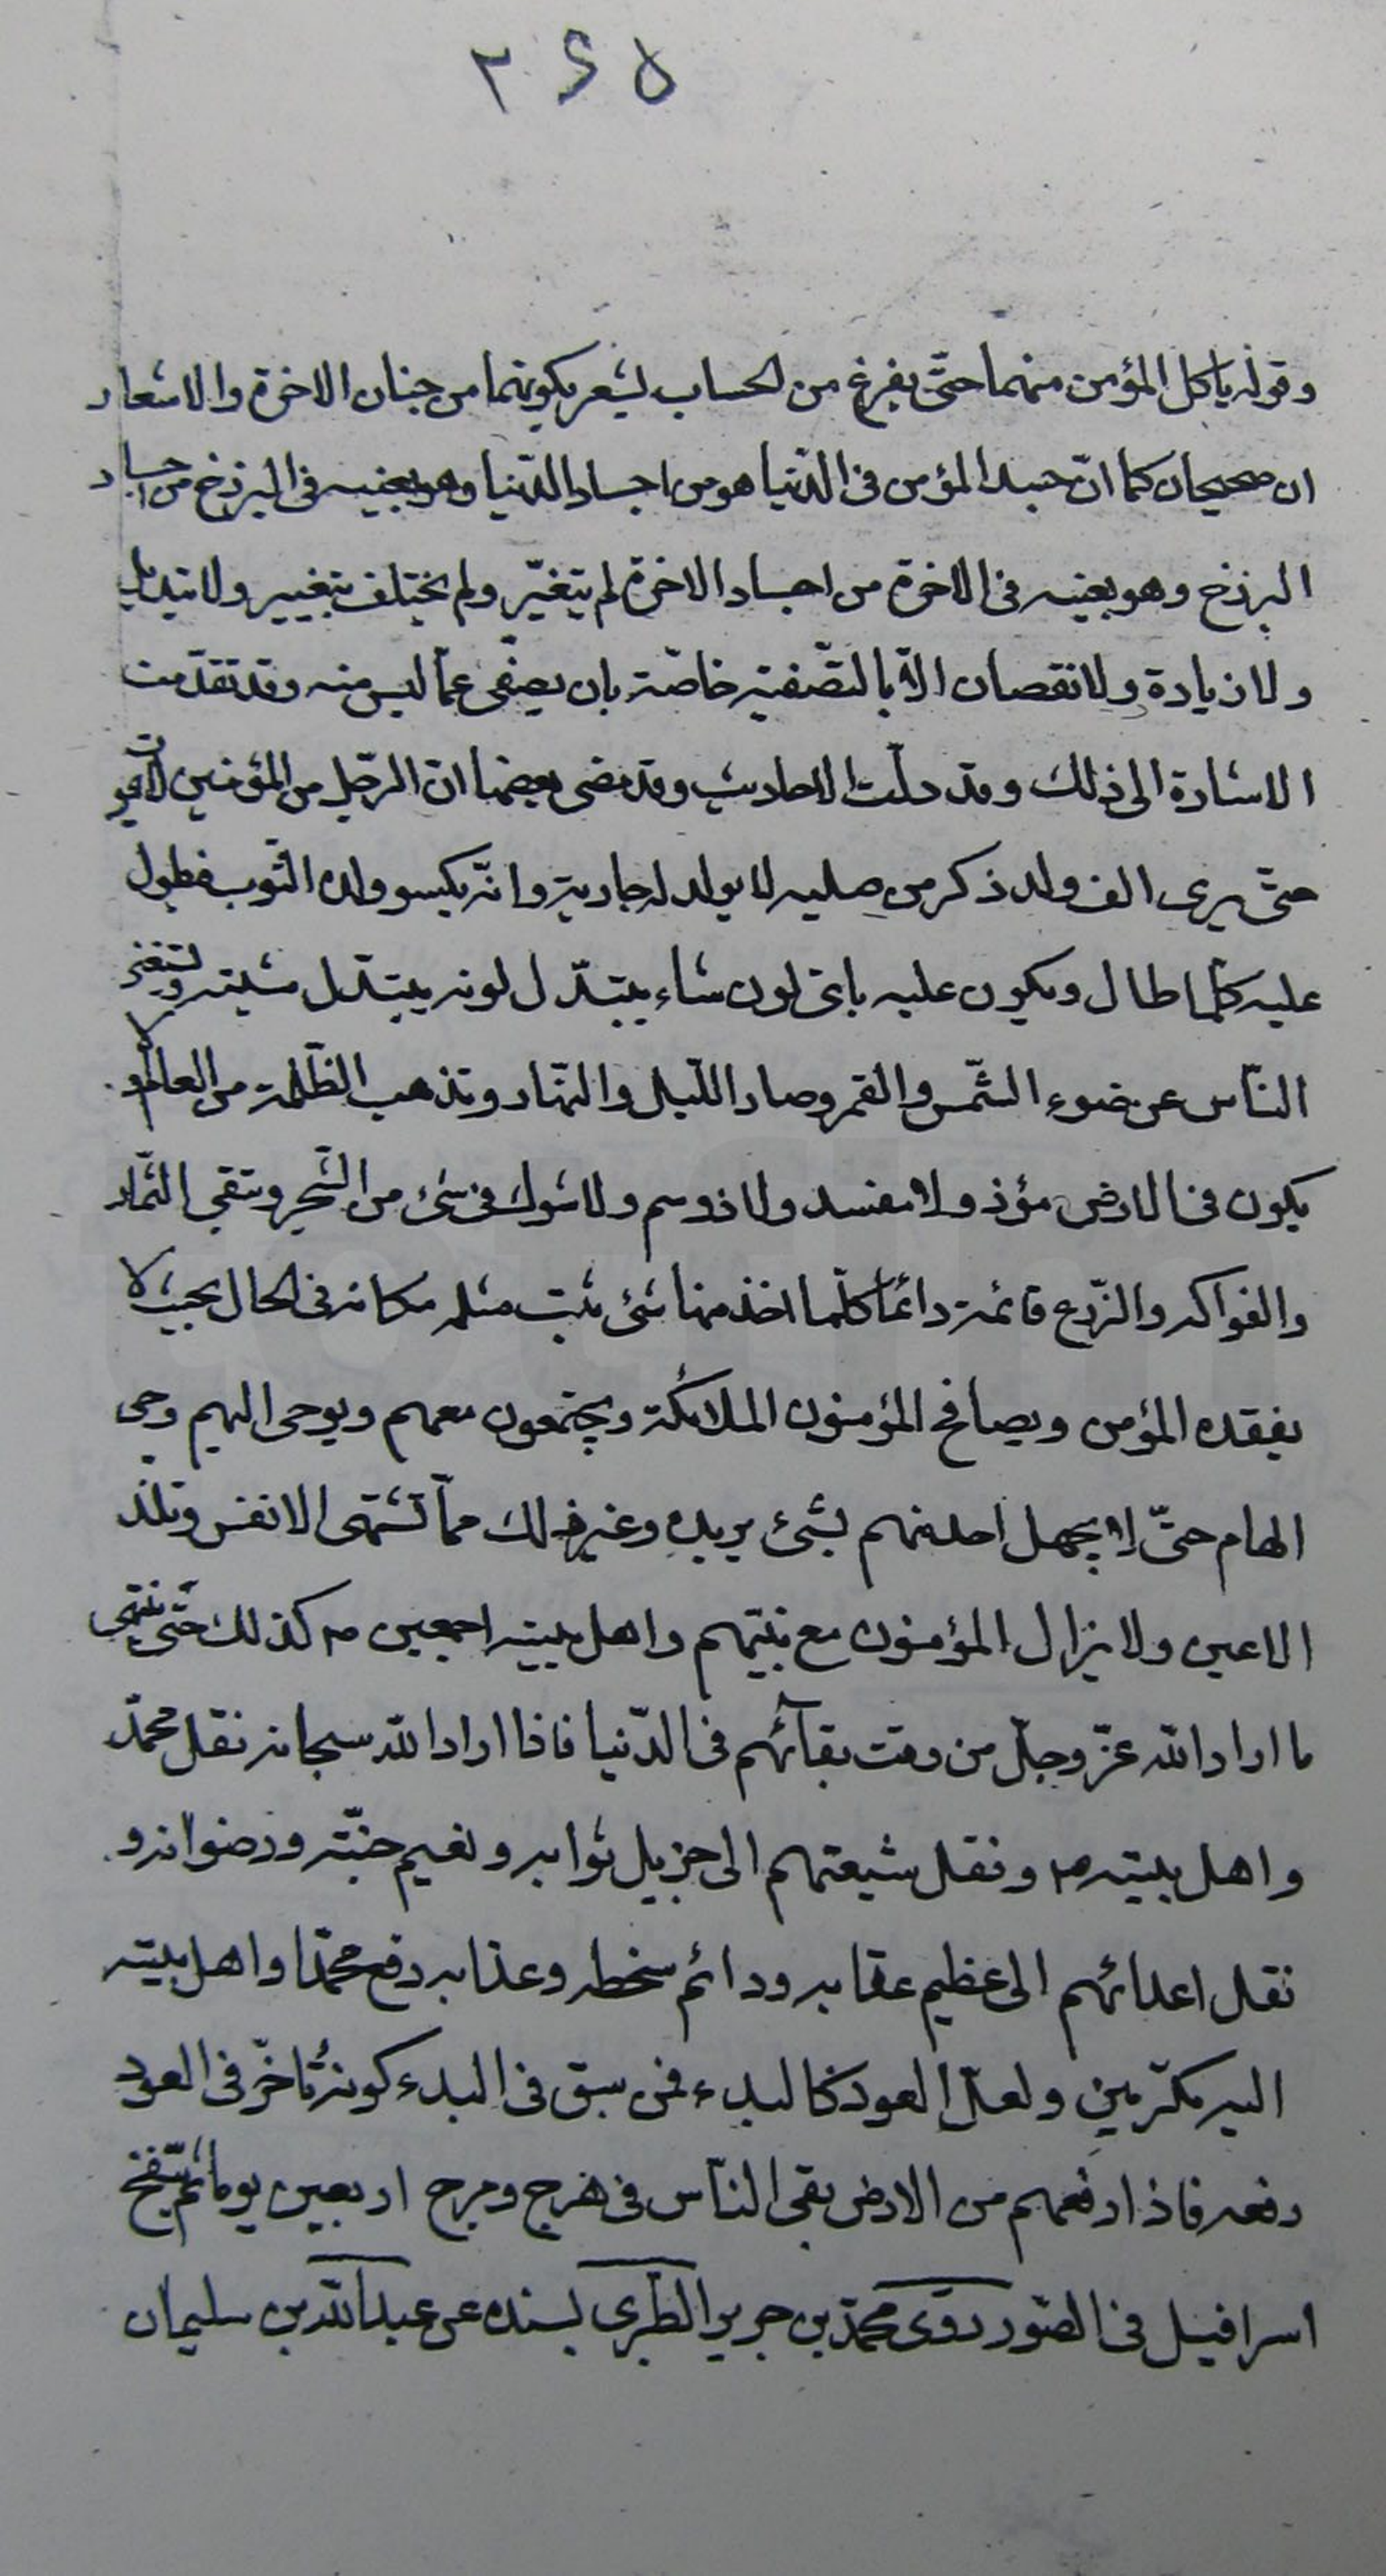 ٢٤٥
وقوله ياكل المؤمن منهما حتّى يفرغ من الحساب ليشعر بكونهما من جنان الاخرة والاشعار
ان صحيحان كما انّ جسد المؤمن فى الدّنيا هو من اجساد الدّنيا وهو بعينه فى البرزخ من اجساد
البرزخ وهو بعينه فى الاخرة من اجساد الاخرة لم يتغيّر ولم يختلف بتغيير ولا تبديل
ولا زيادة ولا نقصان الّا بالتّصفية خاصّة بان يصفّى عمّا ليس منه وقد تقدّمت
الاشارة الى ذلك وقد دلّت الاحاديث وقد مضى بعضها انّ الرّجل من المؤمنين لا يموت
حتّى يرى الف ولد ذكر من صلبه لا يولد له جارية وانّه يكسو ولده الثّوب فيطول
عليه كلّما طال ويكون عليه باىّ لون شاء يتبدّل لونه بتبدّل مشيّته وتستغنى
النّاس عن ضوء الشّمس والقمر وصار اللّيل والنّهار وتذهب الظّلمة من العالم ولا
يكون فى الارض مؤذ ولا مفسد ولا ذو سم ولا شوك فى شئ من الشّجر وتبقى الثّمار
والفواكه والزّرع قائمة دائما كلّما اخذ منها شئ نبت مثله مكانه فى الحال بحيث لا
يفقده المؤمن ويصافح المؤمنون الملائكة ويجتمعون معهم ويوحى اليهم وحى
الهام حتّى لا يجهل احد منهم بشئ يريده وغير ذلك ممّا تشتهى الانفس وتلذّ
الاعين ولا يزال المؤمنون مع نبيّهم واهل بيته اجمعين ص كذلك حتّى ينتهى
ما اراد الله عزّ وجلّ من وقت بقآئهم فى الدّنيا فاذا اراد الله سبحانه نقل محمّد
واهل بيته ص ونقل شيعتهم الى جزيل ثوابه ونعيم جنّته ورضوانه و
نقل اعدائهم الى عظيم عقابه ودائم سخطه وعذابه رفع محمّدا واهل بيته
اليه مكرّمين ولعلّ العود كالبدء فمن سبق فى البدء كونه تأخّر فى العود
رفعه فاذا رفعهم من الارض بقى النّاس فى هرج ومرج اربعين يوما ثم ينفخ
اسرافيل فى الصّور روى محمّد بن جرير الطّبرى بسنده عن عبد الله بن سليمان